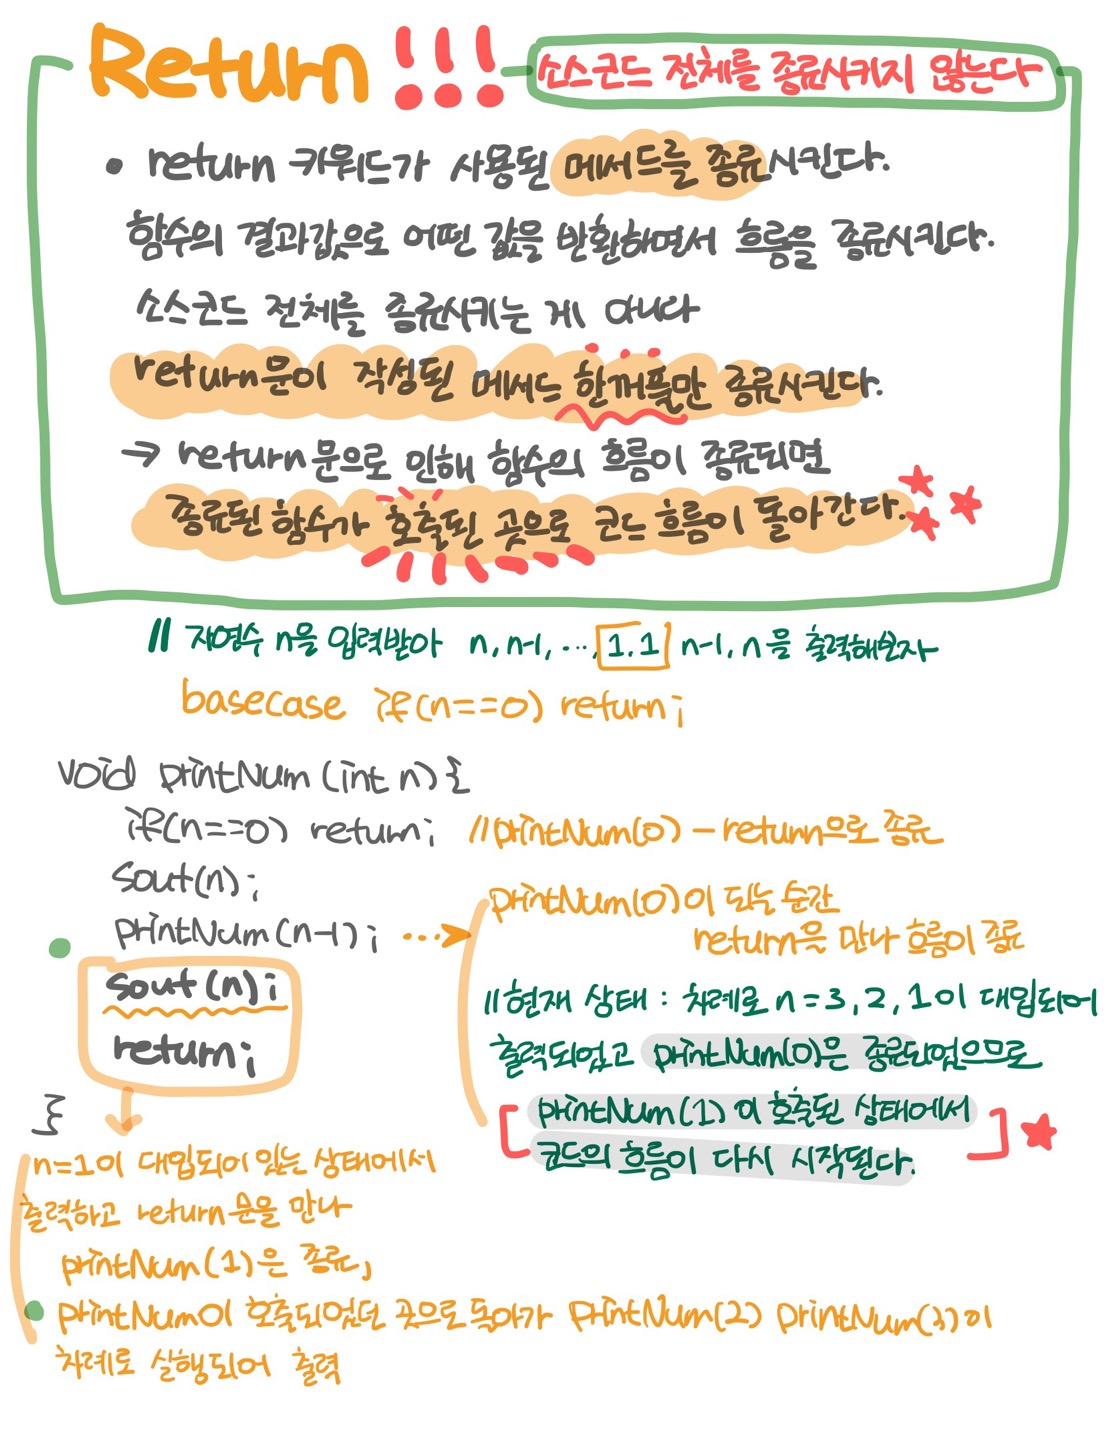 Return !!!
소스코드 전체를 종료시키지 않는다
• return 키워드가 사용된 메서드를 종료시킨다.
함수의 결과값으로 어떤 값을 반환하면서 흐름을 종료시킨다.
소스코드 전체를 종료시키는 게 아니라
return문이 작성된 메서드 한꺼풀만 종료시킨다.
→ return문으로 인해 함수의 흐름이 종료되면
종료된 함수가 호출된 곳으로 코드 흐름이 돌아간다.
// 자연수 n을 입력받아 n, n-1, ..., 1.1 n-1, n을 출력해보자
basecase if(n==0) return;
void printNum (int n) {
if(n==0) return; //printNum(0) - return으로 종료
Sout(n);
printNum(n-1); ...→
printNum(0)이 되는 순간
return을 만나 흐름이 종료
sout(n);
return;
//현재 상태 : 차례로 n=3, 2, 1이 대입되어
출력되었고 printNum(0)은 종료되었으므로
[printNum(1)이 호출된 상태에서
코드의 흐름이 다시 시작된다.]
}
n=1이 대입되어 있는 상태에서
출력하고 return문을 만나
printNum(1)은 종료,
printNum이 호출되었던 곳으로 돌아가 printNum(2) printNum(3)이
차례로 실행되어 출력